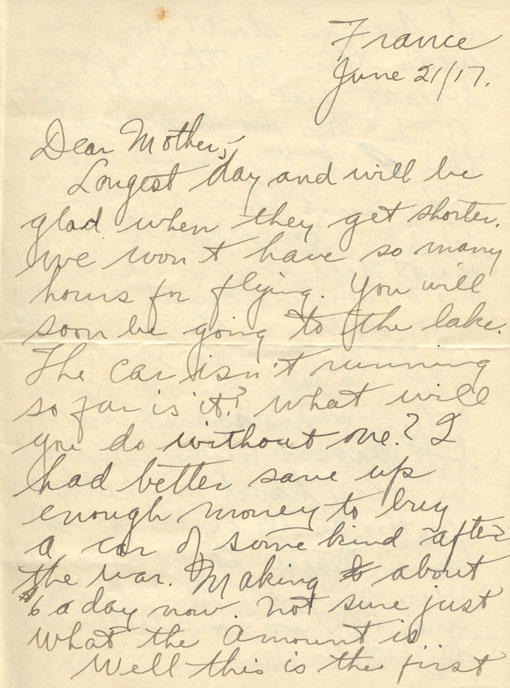 France
June 21/17.
Dear Mother;-
Longest day and will be
glad when they get shorter.
We won't have so many
hours for flying. You will
soon be going to the lake.
The car isn't running
so far is it? What will
you do without one? I
had better save up
enough money to buy
a car of some kind after
the war. Making about
$6 a day now. Not sure just
what the amount is.
Well this is the first